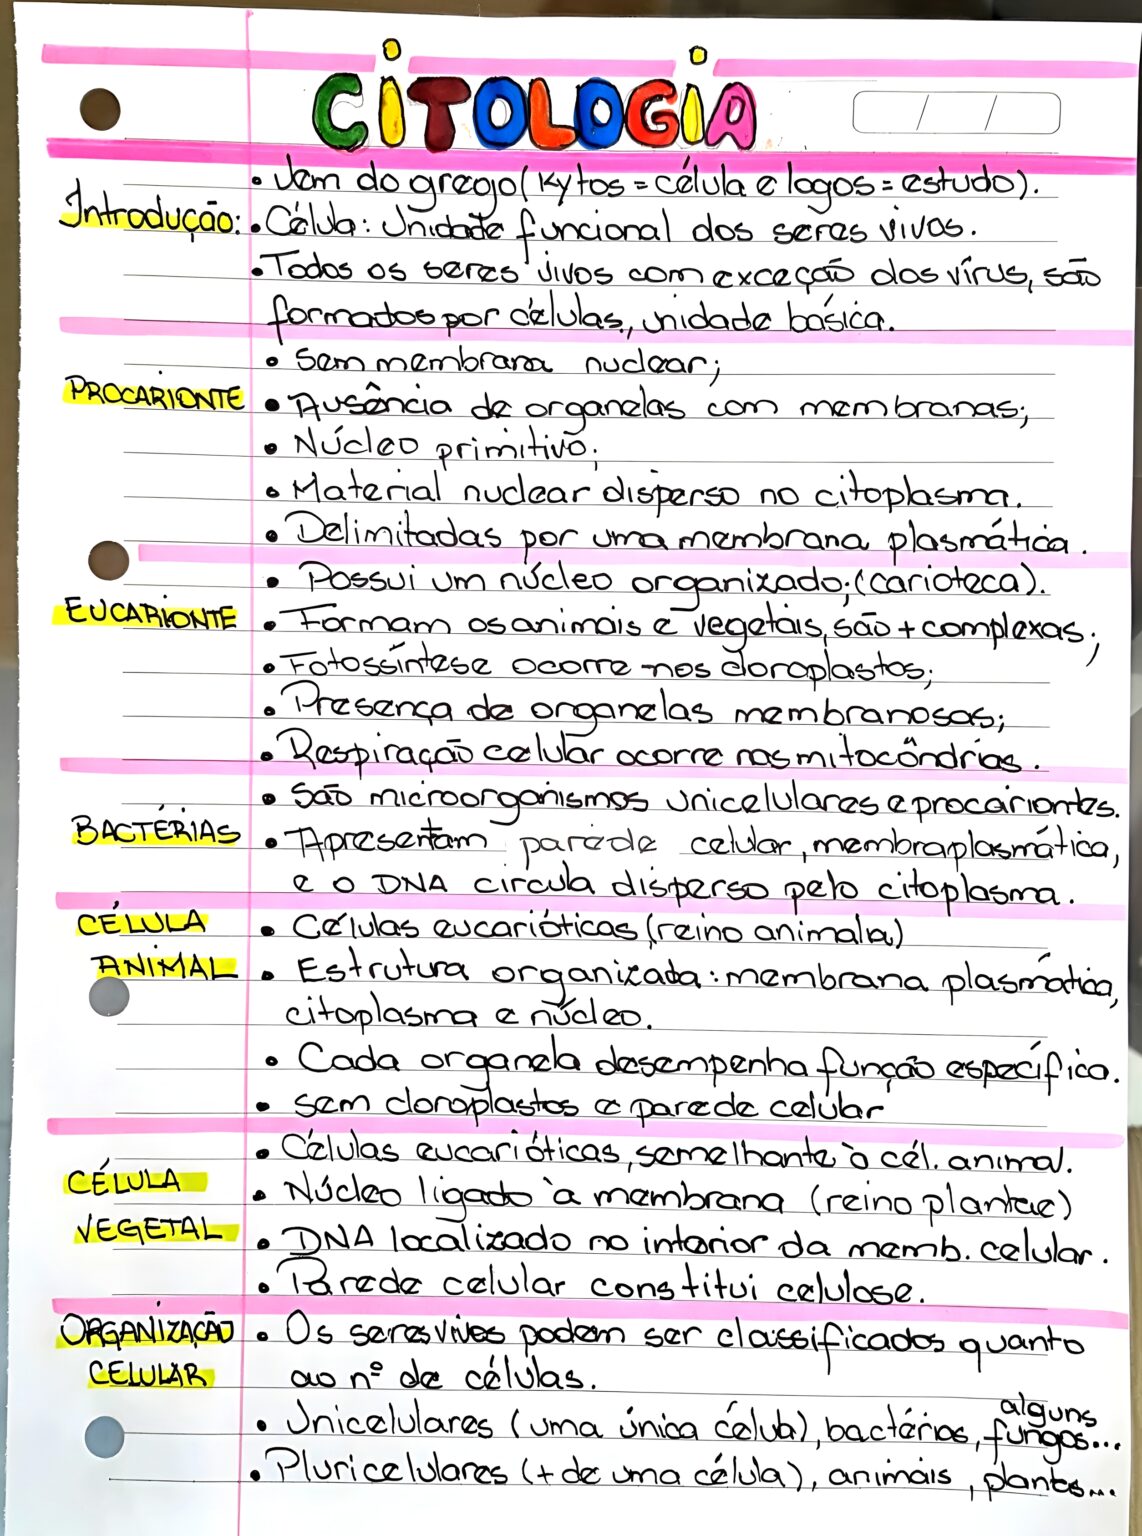 CITOLOGIA
/ /
• Vem do grego (Kytos = célula e logos = estudo).
Introdução: • Célula: Unidade funcional dos seres vivos.
• Todos os seres vivos com exceção dos vírus, são
formados por células, unidade básica.
• Sem membrana nuclear;
PROCARIONTE • Ausência de organelas com membranas;
• Núcleo primitivo;
• Material nuclear disperso no citoplasma.
• Delimitadas por uma membrana plasmática.
• Possui um núcleo organizado; (carioteca).
EUCARIONTE • Formam os animais e vegetais, são + complexas;
• Fotossíntese ocorre nos cloroplastos;
• Presença de organelas membranosas;
• Respiração celular ocorre nas mitocôndrias.
• São microorganismos unicelulares e procariontes.
BACTÉRIAS • Apresentam parede celular, membraplasmática,
e o DNA circula disperso pelo citoplasma.
CÉLULA • Células eucarióticas (reino animala)
ANIMAL • Estrutura organizada: membrana plasmática,
citoplasma e núcleo.
• Cada organela desempenha função específica.
• Sem cloroplastos e parede celular
• Células eucarióticas, semelhante à cél. animal.
CÉLULA • Núcleo ligado à membrana (reino plantae)
VEGETAL • DNA localizado no interior da memb. celular.
• Parede celular constitui celulose.
ORGANIZAÇÃO • Os seres vives podem ser classificados quanto
CELULAR ao nº de células.
• Unicelulares (uma única célula), bactérias, alguns fungos...
• Pluricelulares (+ de uma célula), animais, plantas...